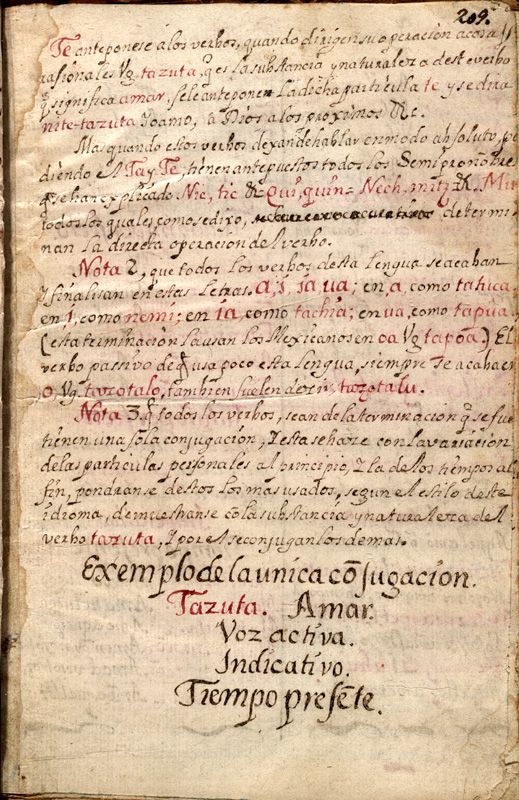 209.
Te anteponese a los verbos, quando dirigen su operacion a cosas
rasionales Vg. tazuta, q̃ es la substancia y naturaleza deste verbo
q̃ significa amar, sele antepone la dicha particulla te y se dira
nite-tazuta Yo amo, a Dios a los proximos &c.
Mas quando estos verbos dexan de hablar en modo absoluto, per-
diendo el Ta y Te, tienen antepuestos todos los Semipronõbres
q̃ se han explicado Nic, tic &c Qui, quin = Nech, mitz &c. Mu
todos los quales como se dixo, determi-
nan la direcĩa operacion del verbo.
Nota 2, que todos los verbos desta lengua se acaban
y finalisan en estas Letras. a, i, ia, ua; en a, como tahica
en i, como nemi; en ia, como tachia; en ua, como tapua
(esta terminacion la usan los Mexicanos en oa Vg tapoa.) El
verbo passivo de q̃ usa poco esta lengua, siempre se acaba en
o, Vg. tazotalo, tambien suelen decir tazotalu.
Nota 3. q̃ todos los verbos, sean de la terminacion q̃ se fue
tienen una sola conjugacion, y esta se haze con la variacion
de las particulas personales al principio, y la de los tiempos al
fin, pondranse destos los mas usados, segun el estilo deste
idioma, demuestranse cõ la substancia y naturaleza del
verbo tazuta, y por el se conjugan los demas.
Exemplo de la unica cõjugacion.
Tazuta. Amar.
Voz activa.
Indicativo.
Tiempo presẽte.